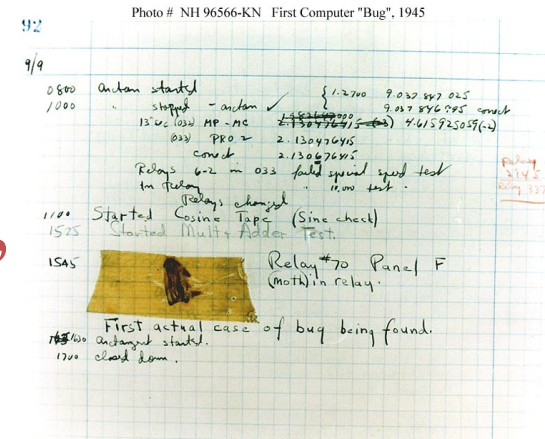 Photo # NH 96566-KN First Computer "Bug", 1945
92
9/9
0800 Antan started
1000 " stopped - antan ✓ { 1.2700 9.037 847 025
9.037 846 995 conect
13"uc (032) MP - MC 2.130476415 4.615925059(-2)
(033) PRO 2 2.130476415
conect 2.130676415
Relays 6-2 in 033 failed special speed test
In Relay " 11,000 test.
Relays changed
1100 Started Cosine Tape (Sine check)
1525 Started Mult + Adder Test.
1545 Relay #70 Panel F
(moth) in relay.
First actual case of bug being found.
1630 antangent started.
1700 closed down.
Relay
2145
Relay 337